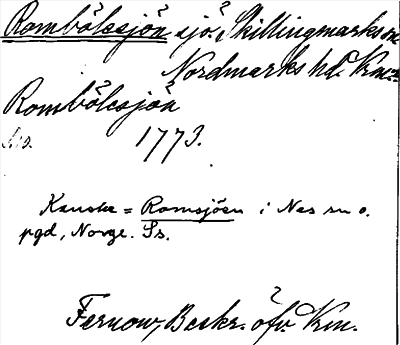 Rombölesjön sjö. Skillingmarks sn
Nordmarks hd. Krm:n
Rombölesjön
1773.
Kanske = Romsjöen i Nes sn o.
pgd, Norge. Ss.
Fernow, Beskr. öfv. Krm.